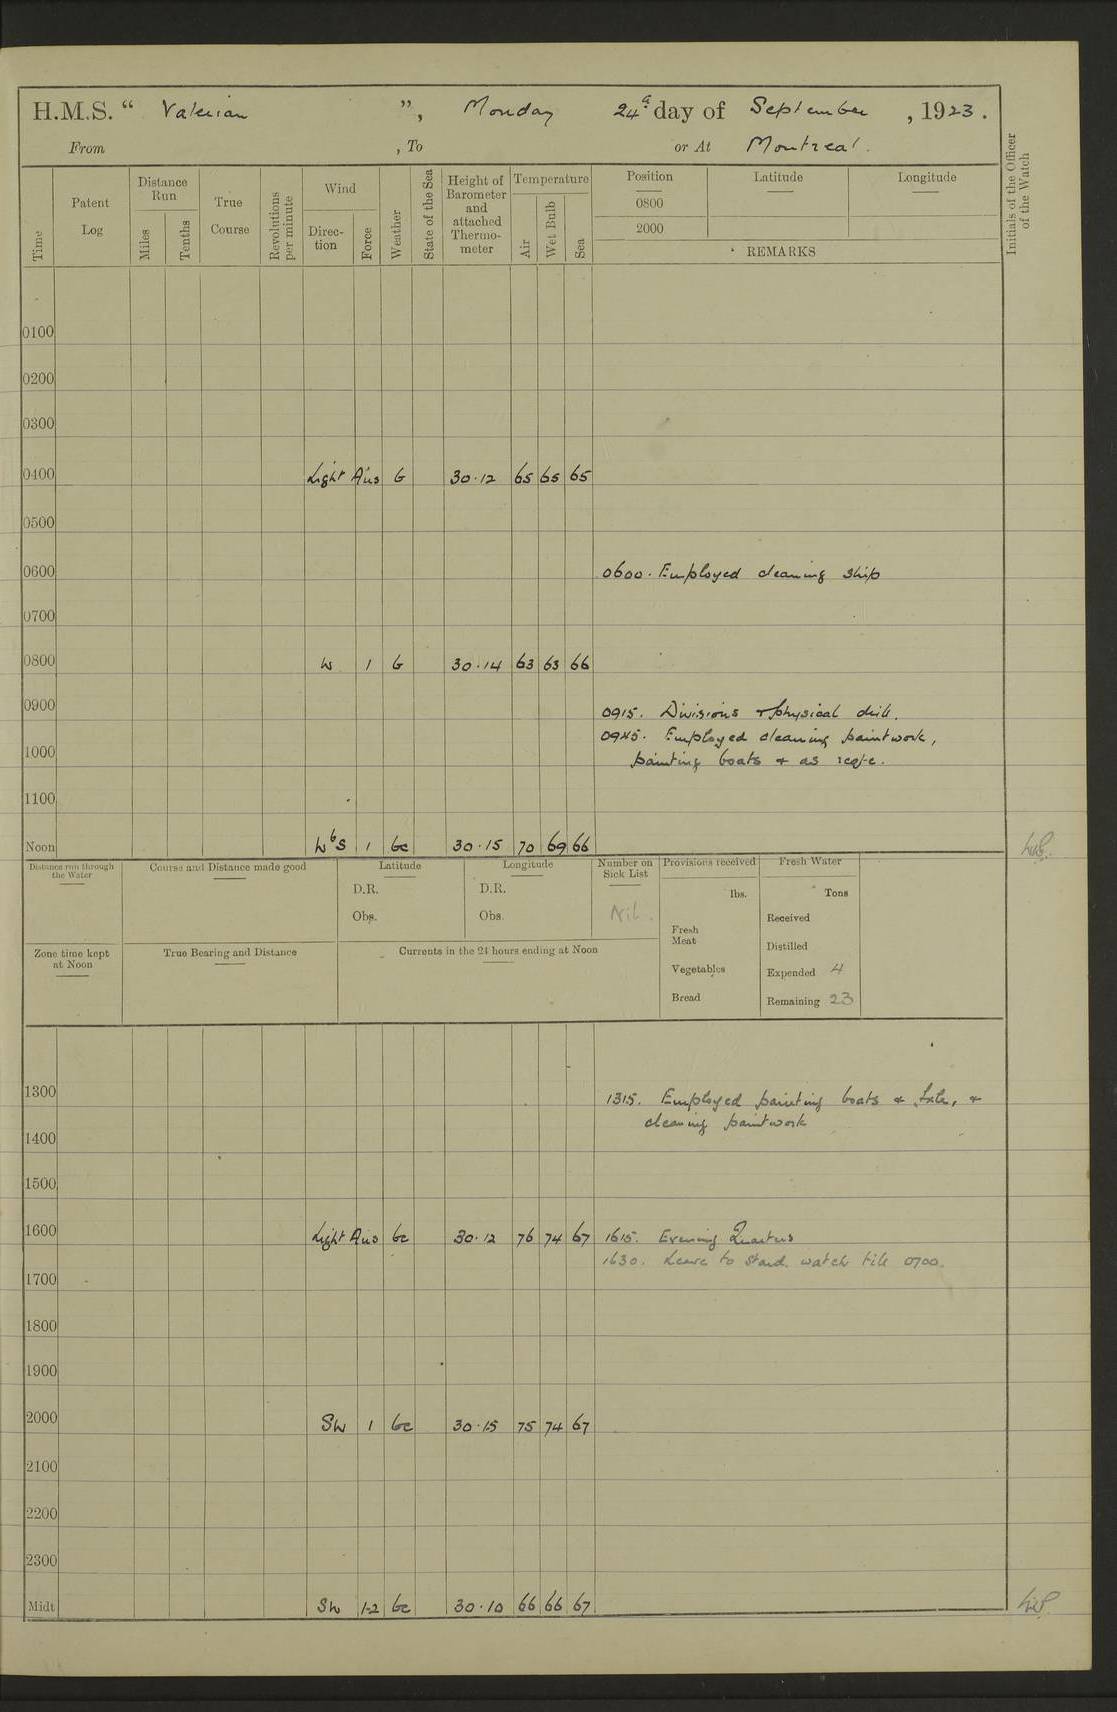 H.M.S. “ Valerian ”, Monday 24th day of September, 1923.
From , To or At Montreal.
Time
Patent Log
Distance Run
Miles
Tenths
True Course
Revolutions per minute
Wind
Direction
Force
Weather
State of the Sea
Height of Barometer and attached Thermometer
Temperature
Air
Wet Bulb
Sea
Position Latitude Longitude
0800
2000
REMARKS
Initials of the Officer of the Watch
0100
0200
0300
0400 Light Airs b 30.12 65 65 65
0500
0600 0600. Employed cleaning ship
0700
0800 W 1 b 30.14 63 63 66
0900 0915. Divisions & physical drill.
0945. Employed cleaning paintwork,
1000 painting boats & as req.
1100
Noon WbS 1 bc 30.15 70 69 66
Distance run through the Water
Course and Distance made good
Latitude
D.R.
Obs.
Longitude
D.R.
Obs.
Number on Sick List
Nil.
Provisions received
lbs.
Fresh Meat
Vegetables
Bread
Fresh Water
Tons
Received
Distilled
Expended 4
Remaining 23
Zone time kept at Noon
True Bearing and Distance
Currents in the 24 hours ending at Noon
1300 1315. Employed painting boats & &
cleaning paintwork
1400
1500
1600 Light Airs bc 30.12 76 74 67 1615. Evening Quarters
1630. Leave to Starb. watch till 0700.
1700
1800
1900
2000 SW 1 bc 30.15 75 74 67
2100
2200
2300
Midt SW 1-2 bc 30.10 66 66 67